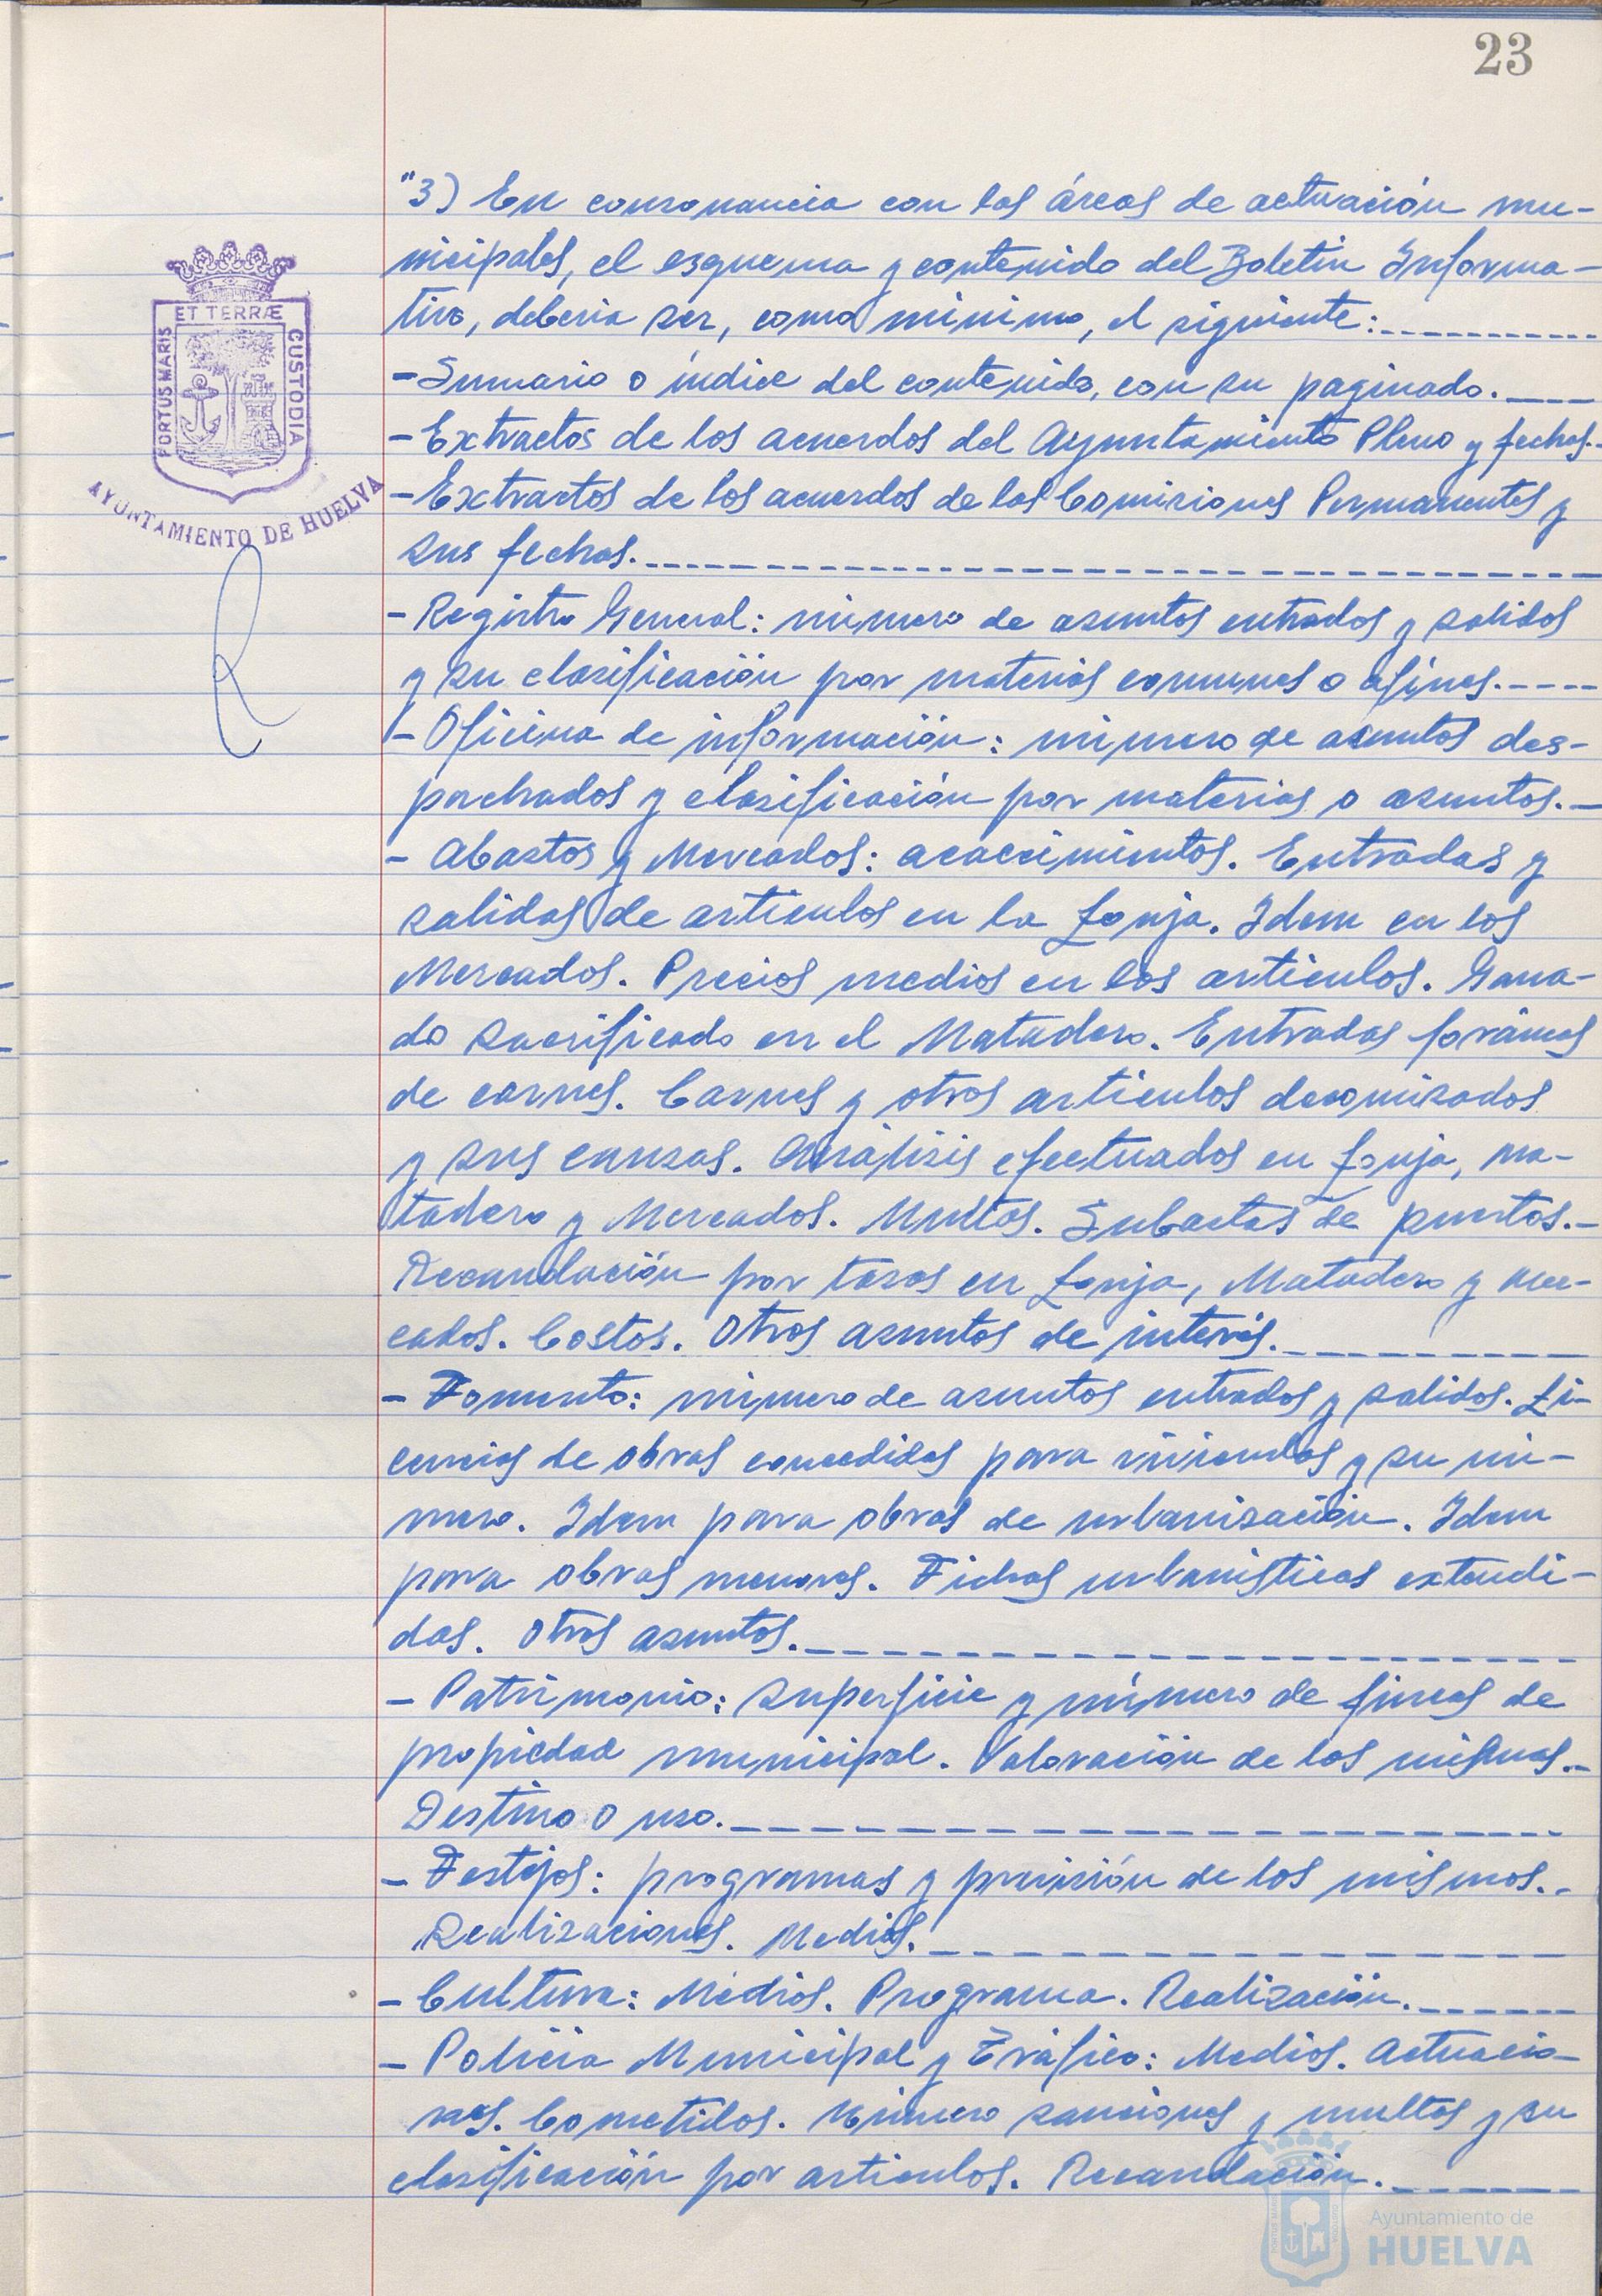 23
"3) En consonancia con las áreas de actuación mu-
nicipales, el esquema y contenido del Boletin Informa-
tivo, deberia ser, como minimo, el siguiente:
-Sumario o índice del contenido, con su paginado.
-Extractos de los acuerdos del Ayuntamiento Pleno y fechas.
-Extractos de los acuerdos de las Comisiones Permanentes y
sus fechas.
-Registro General: número de asuntos entrados y salidos
y su clasificación por materias comunes o afines.
-Oficina de información: número de asuntos des-
pachados y clasificación por materias o asuntos.
- Abastos y Mercados: acaecimientos. Entradas y
salidas de artículos en la Lonja. Idem en los
Mercados. Precios medios en los artículos. Gana-
do sacrificado en el Matadero. Entradas foráneas
de carnes. Carnes y otros artículos decomisados
y sus causas. Análisis efectuados en Lonja, ma-
tadero y Mercados. Multas. Subastas de puestos.
Recaudación por tasas en Lonja, Matadero y mer-
cados. Costos. Otros asuntos de interés.
- Fomento: número de asuntos entrados y salidos. Li-
cencias de obras concedidas para viviendas y su nú-
mero. Idem para obras de urbanización. Idem
para obras menores. Fichas urbanísticas extendi-
das. Otros asuntos.
- Patrimonio: superficie y número de fincas de
propiedad municipal. Valoración de las mismas.
Destino o uso.
- Festejos: programas y previsión de los mismos.
Realizaciones. Medios.
- Cultura: Medios. Programa. Realización.
- Policía Municipal y Tráfico: Medios. Actuacio-
nes. Cometidos. Número sanciones y multas y su
clasificación por artículos. Recaudación.
PORTUS MARIS
ET TERRÆ
CUSTODIA
AYUNTAMIENTO DE HUELVA
Ayuntamiento de
HUELVA